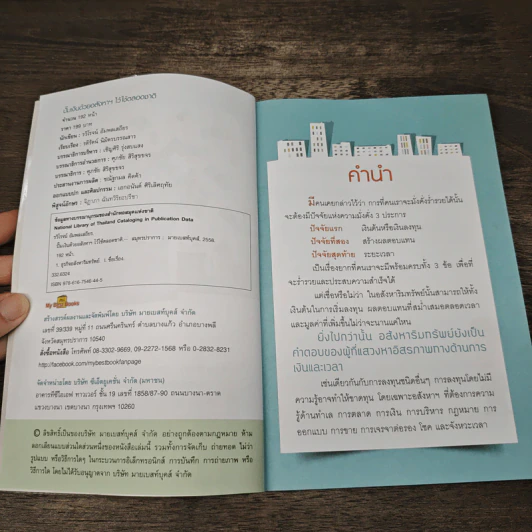 ปั้นเงินด้วยอสังหาฯ ไว้ใช้ตลอดชาติ
จำนวน 192 หน้า
ราคา 199 บาท
บรรณาธิการบริหาร : เชิญศิริ รุ่งสบแสง
บรรณาธิการอำนวยการ : ศุภชัย
ประสานงานการผลิต :
ออกแบบปก และศิลปกรรม : เอกอนันต์
พิสูจน์อักษร :
ข้อมูลทางบรรณานุกรมของสำนักหอสมุดแห่งชาติ
National Library of Thailand Cataloging in Publication Data
ปั้นเงินด้วยอสังหาฯ ไว้ใช้ตลอดชาติ.-- สมุทรปราการ : มายเบสท์บุ๊คส์, 2558.
192 หน้า.
1. ธุรกิจอสังหาริมทรัพย์. I. ชื่อเรื่อง.
333.6324
ISBN 978-616-7546-44-5
My Best Books
สร้างสรรค์ผลงานและจัดพิมพ์โดย บริษัท มายเบสท์บุ๊คส์ จำกัด
เลขที่ 39/339 หมู่ที่ 11 ถนนศรีนครินทร์ ตำบลบางแก้ว อำเภอบางพลี
จังหวัดสมุทรปราการ 10540
สั่งซื้อหนังสือ โทรศัพท์ 08-3302-9669, 09-2272-1568 หรือ 0-2832-8231
http://facebook.com/mybestbookfanpage
จัดจำหน่ายโดย บริษัท ซีเอ็ดยูเคชั่น จำกัด (มหาชน)
อาคารทีซีไอเอฟ ทาวเวอร์ ชั้น 19 เลขที่ 1858/87-90 ถนนบางนา-ตราด
แขวงบางนา เขตบางนา กรุงเทพฯ 10260
© ลิขสิทธิ์เป็นของบริษัท มายเบสท์บุ๊คส์ จำกัด อย่างถูกต้องตามกฎหมาย ห้าม
ลอกเลียนแบบส่วนใดส่วนหนึ่งของหนังสือเล่มนี้ รวมทั้งการจัดเก็บ ถ่ายทอด ไม่ว่า
รูปแบบ หรือวิธีการใดๆ ในกระบวนการอิเล็กทรอนิกส์ การบันทึก การถ่ายภาพ หรือ
วิธีการใด โดยไม่ได้รับอนุญาตจาก บริษัท มายเบสท์บุ๊คส์ จำกัด
คำนำ
มีคนเคยกล่าวไว้ว่า การที่คนเราจะมั่งคั่งร่ำรวยได้นั้น
จะต้องมีปัจจัยแห่งความมั่งคั่ง 3 ประการ
ปัจจัยแรก เงินต้นหรือเงินลงทุน
ปัจจัยที่สอง สร้างผลตอบแทน
ปัจจัยสุดท้าย ระยะเวลา
เป็นเรื่องยากที่คนเราจะมีพร้อมครบทั้ง 3 ข้อ เพื่อที่
จะร่ำรวยและประสบความสำเร็จได้
แต่เชื่อหรือไม่ว่า ในอสังหาริมทรัพย์นั้นสามารถให้ทั้ง
เงินต้นในการเริ่มลงทุน ผลตอบแทนที่สม่ำเสมอตลอดเวลา
และมูลค่าที่เพิ่มขึ้นไม่ว่าจะนานแค่ไหน
ยิ่งไปกว่านั้น อสังหาริมทรัพย์ยังเป็น
คำตอบของผู้ที่แสวงหาอิสรภาพทางด้านการ
เงินและเวลา
เช่นเดียวกันกับการลงทุนชนิดอื่นๆ การลงทุนโดยไม่มี
ความรู้อาจทำให้ขาดทุน โดยเฉพาะอสังหาฯ ที่ต้องการความ
รู้ด้านทำเล การตลาด การเงิน การบริหาร กฎหมาย การ
ออกแบบ การขาย การเจรจาต่อรอง โชค และจังหวะเวลา